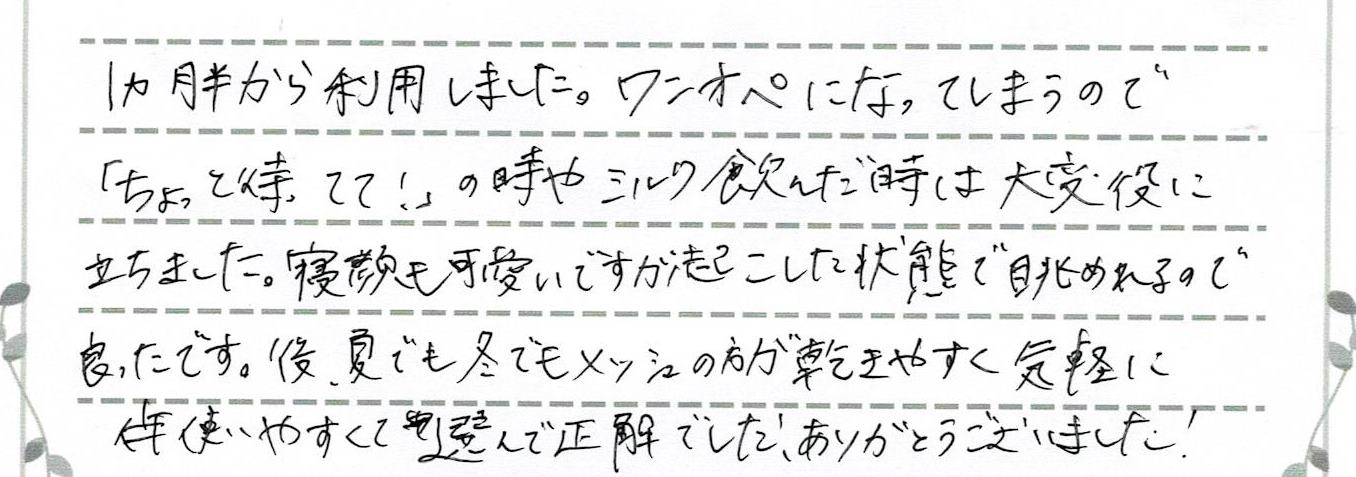 1ヵ月半から利用しました。ワンオペになってしまうので
「ちょっと待ってて!」の時やミルク飲んだ時は大変役に
立ちました。寝顔も可愛いですが起こした状態で眺めれるので
良ったです。後、夏でも冬でもメッシュの方が乾きやすく気軽に
使いやすくて選んで正解でした、ありがとうございました!